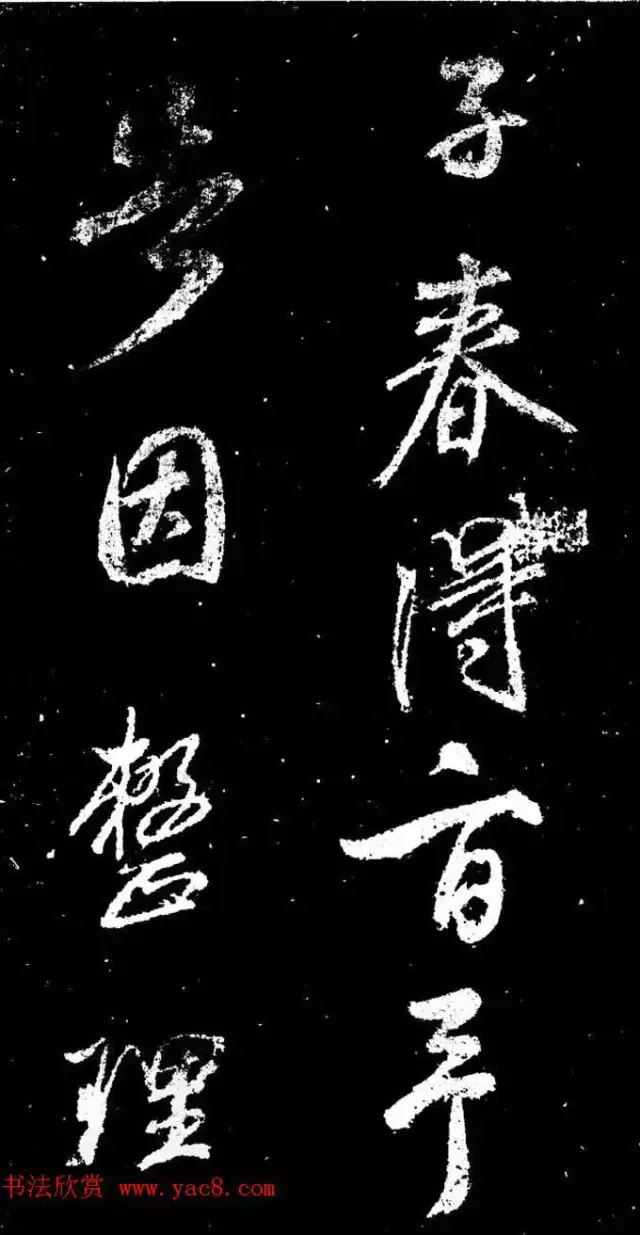 子春得
步因整理
书法欣赏 www.yac8.com